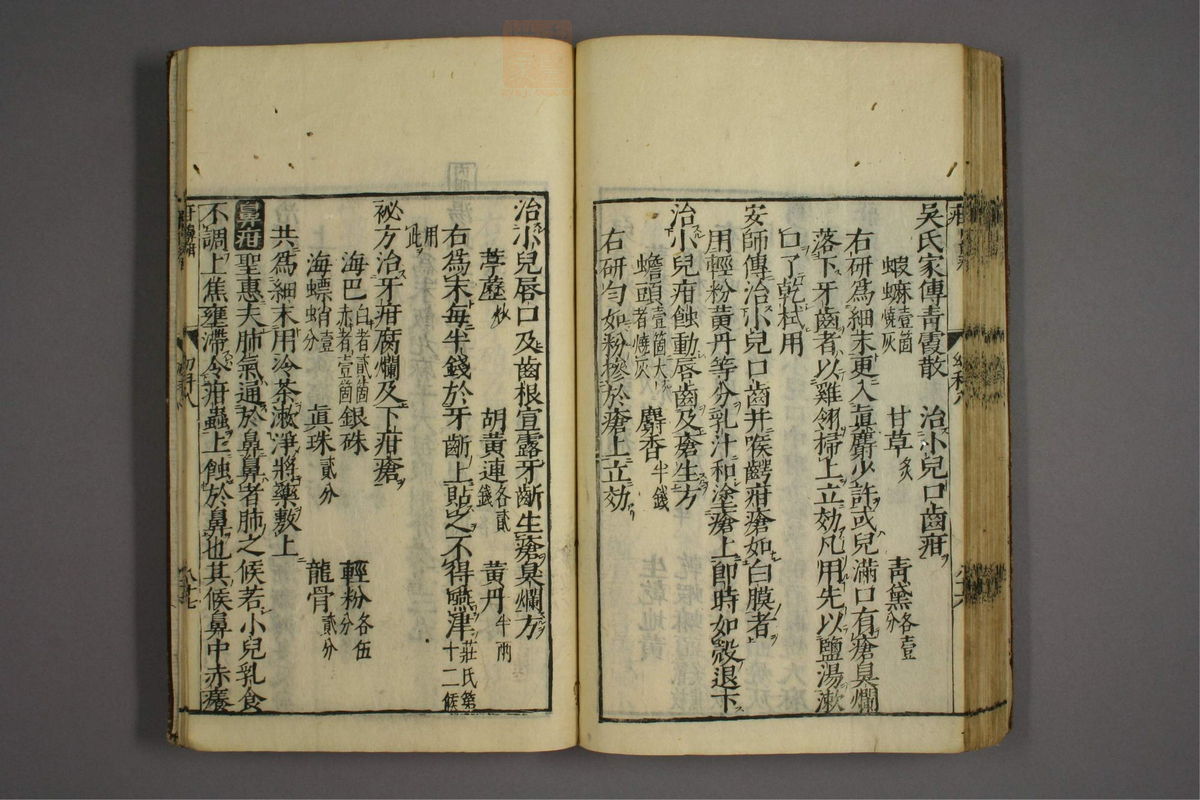 吳氏家傳靑霞散　治小兒口齒疳
蝦蟆壹箇燒灰　甘草炙　靑黛各壹分
右研爲細末更入眞麝少許或兒滿口有瘡臭爛
落下牙齒者以雞翎掃上立効凡用先以鹽湯漱
口了乾拭用
安師傳治小兒口齒幷喉齶疳瘡如白膜者
用輕粉黃丹等分乳汁和塗瘡上卽時如殼退下
治小兒疳蝕動唇齒及瘡生方
蟾頭壹箇大者燒灰　麝香半錢
右研勻如粉摻於瘡上立効
治小兒唇口及齒根宣露牙齗生瘡臭爛方
葶藶炒　胡黃連各貳錢　黃丹半兩
右爲末每半錢於牙齗上貼之不得嚥津莊氏第十二候
用此
祕方治牙疳腐爛及下疳瘡
海巴白者貳箇赤者壹箇　銀硃　輕粉各伍分
海螵蛸壹分　眞珠貳分　龍骨貳分
共爲細末用冷茶漱淨將藥敷上
鼻疳　聖惠夫肺氣通於鼻鼻者肺之候若小兒乳食
不調上焦壅滯令疳蟲上蝕於鼻也其候鼻中赤癢